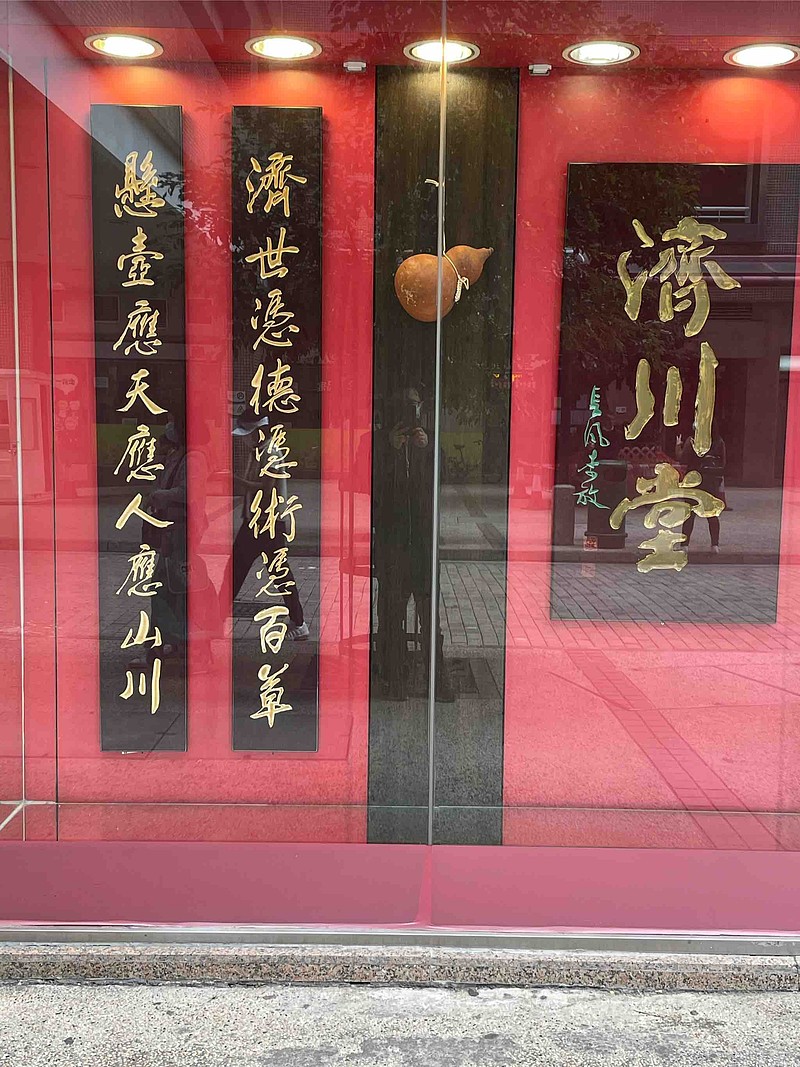 濟川堂
濟世憑德憑術憑百草
懸壺應天應人應山川